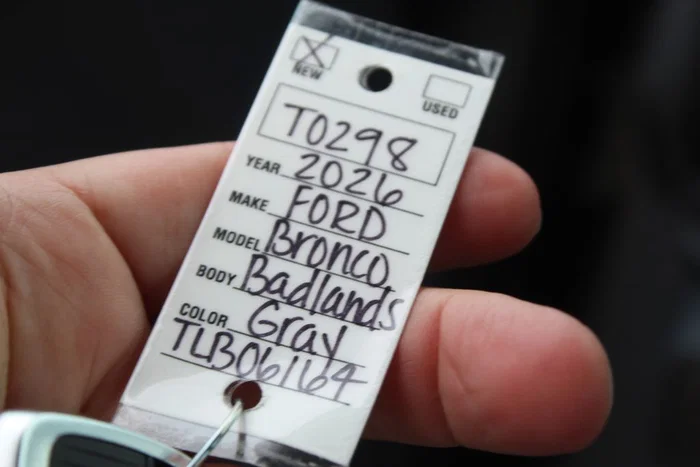 NEW USED
T0298
YEAR 2026
MAKE FORD
MODEL Bronco
BODY Badlands
COLOR Gray
TLB06164